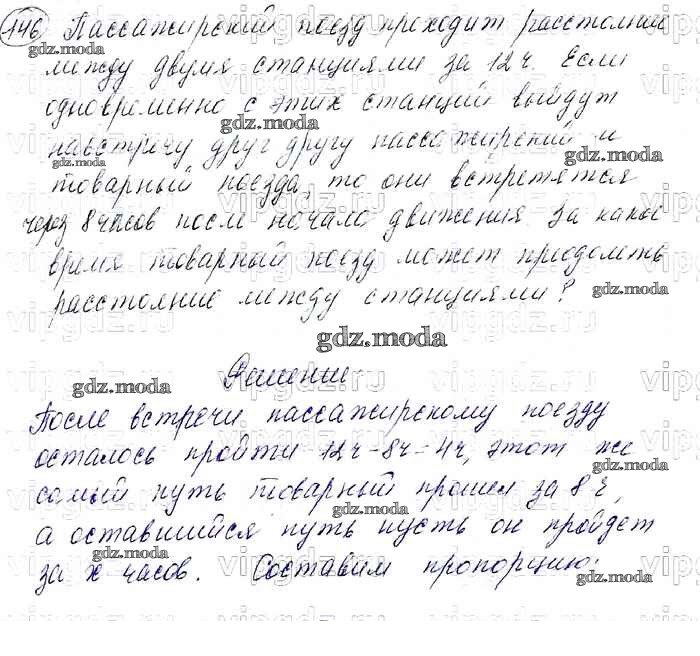 146 Пассажирский поезд проходит расстояние
между двумя станциями за 12ч. Если
одновременно с этих станций выйдут
навстречу друг другу пассажирский и
товарный поезда, то они встретятся
через 8 часов после начала движения. За какое
время товарный поезд может преодолеть
расстояние между станциями?
gdz.moda
Решение
После встречи пассажирскому поезду
осталось пройти 12ч-8ч=4ч, этот же
самый путь товарный прошел за 8ч,
а оставшийся путь пусть он пройдет
за x часов. Составим пропорцию: